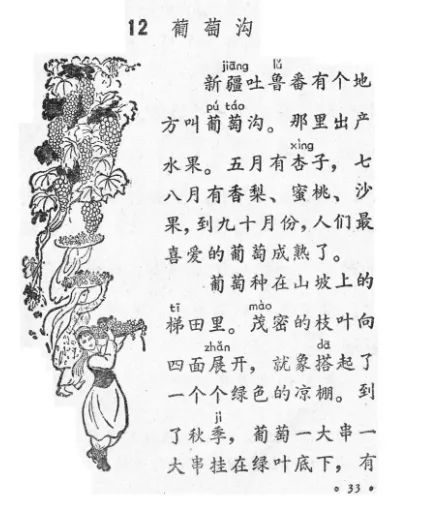 12 葡萄沟
jiāng lǔ
新疆吐鲁番有个地
pú táo
方叫葡萄沟。那里出产
xìng
水果。五月有杏子，七
八月有香梨、蜜桃、沙
果，到九十月份，人们最
喜爱的葡萄成熟了。
葡萄种在山坡上的
tī mào
梯田里。茂密的枝叶向
zhǎn dā
四面展开，就象搭起了
一个个绿色的凉棚。到
jì
了秋季，葡萄一大串一
大串挂在绿叶底下，有
33